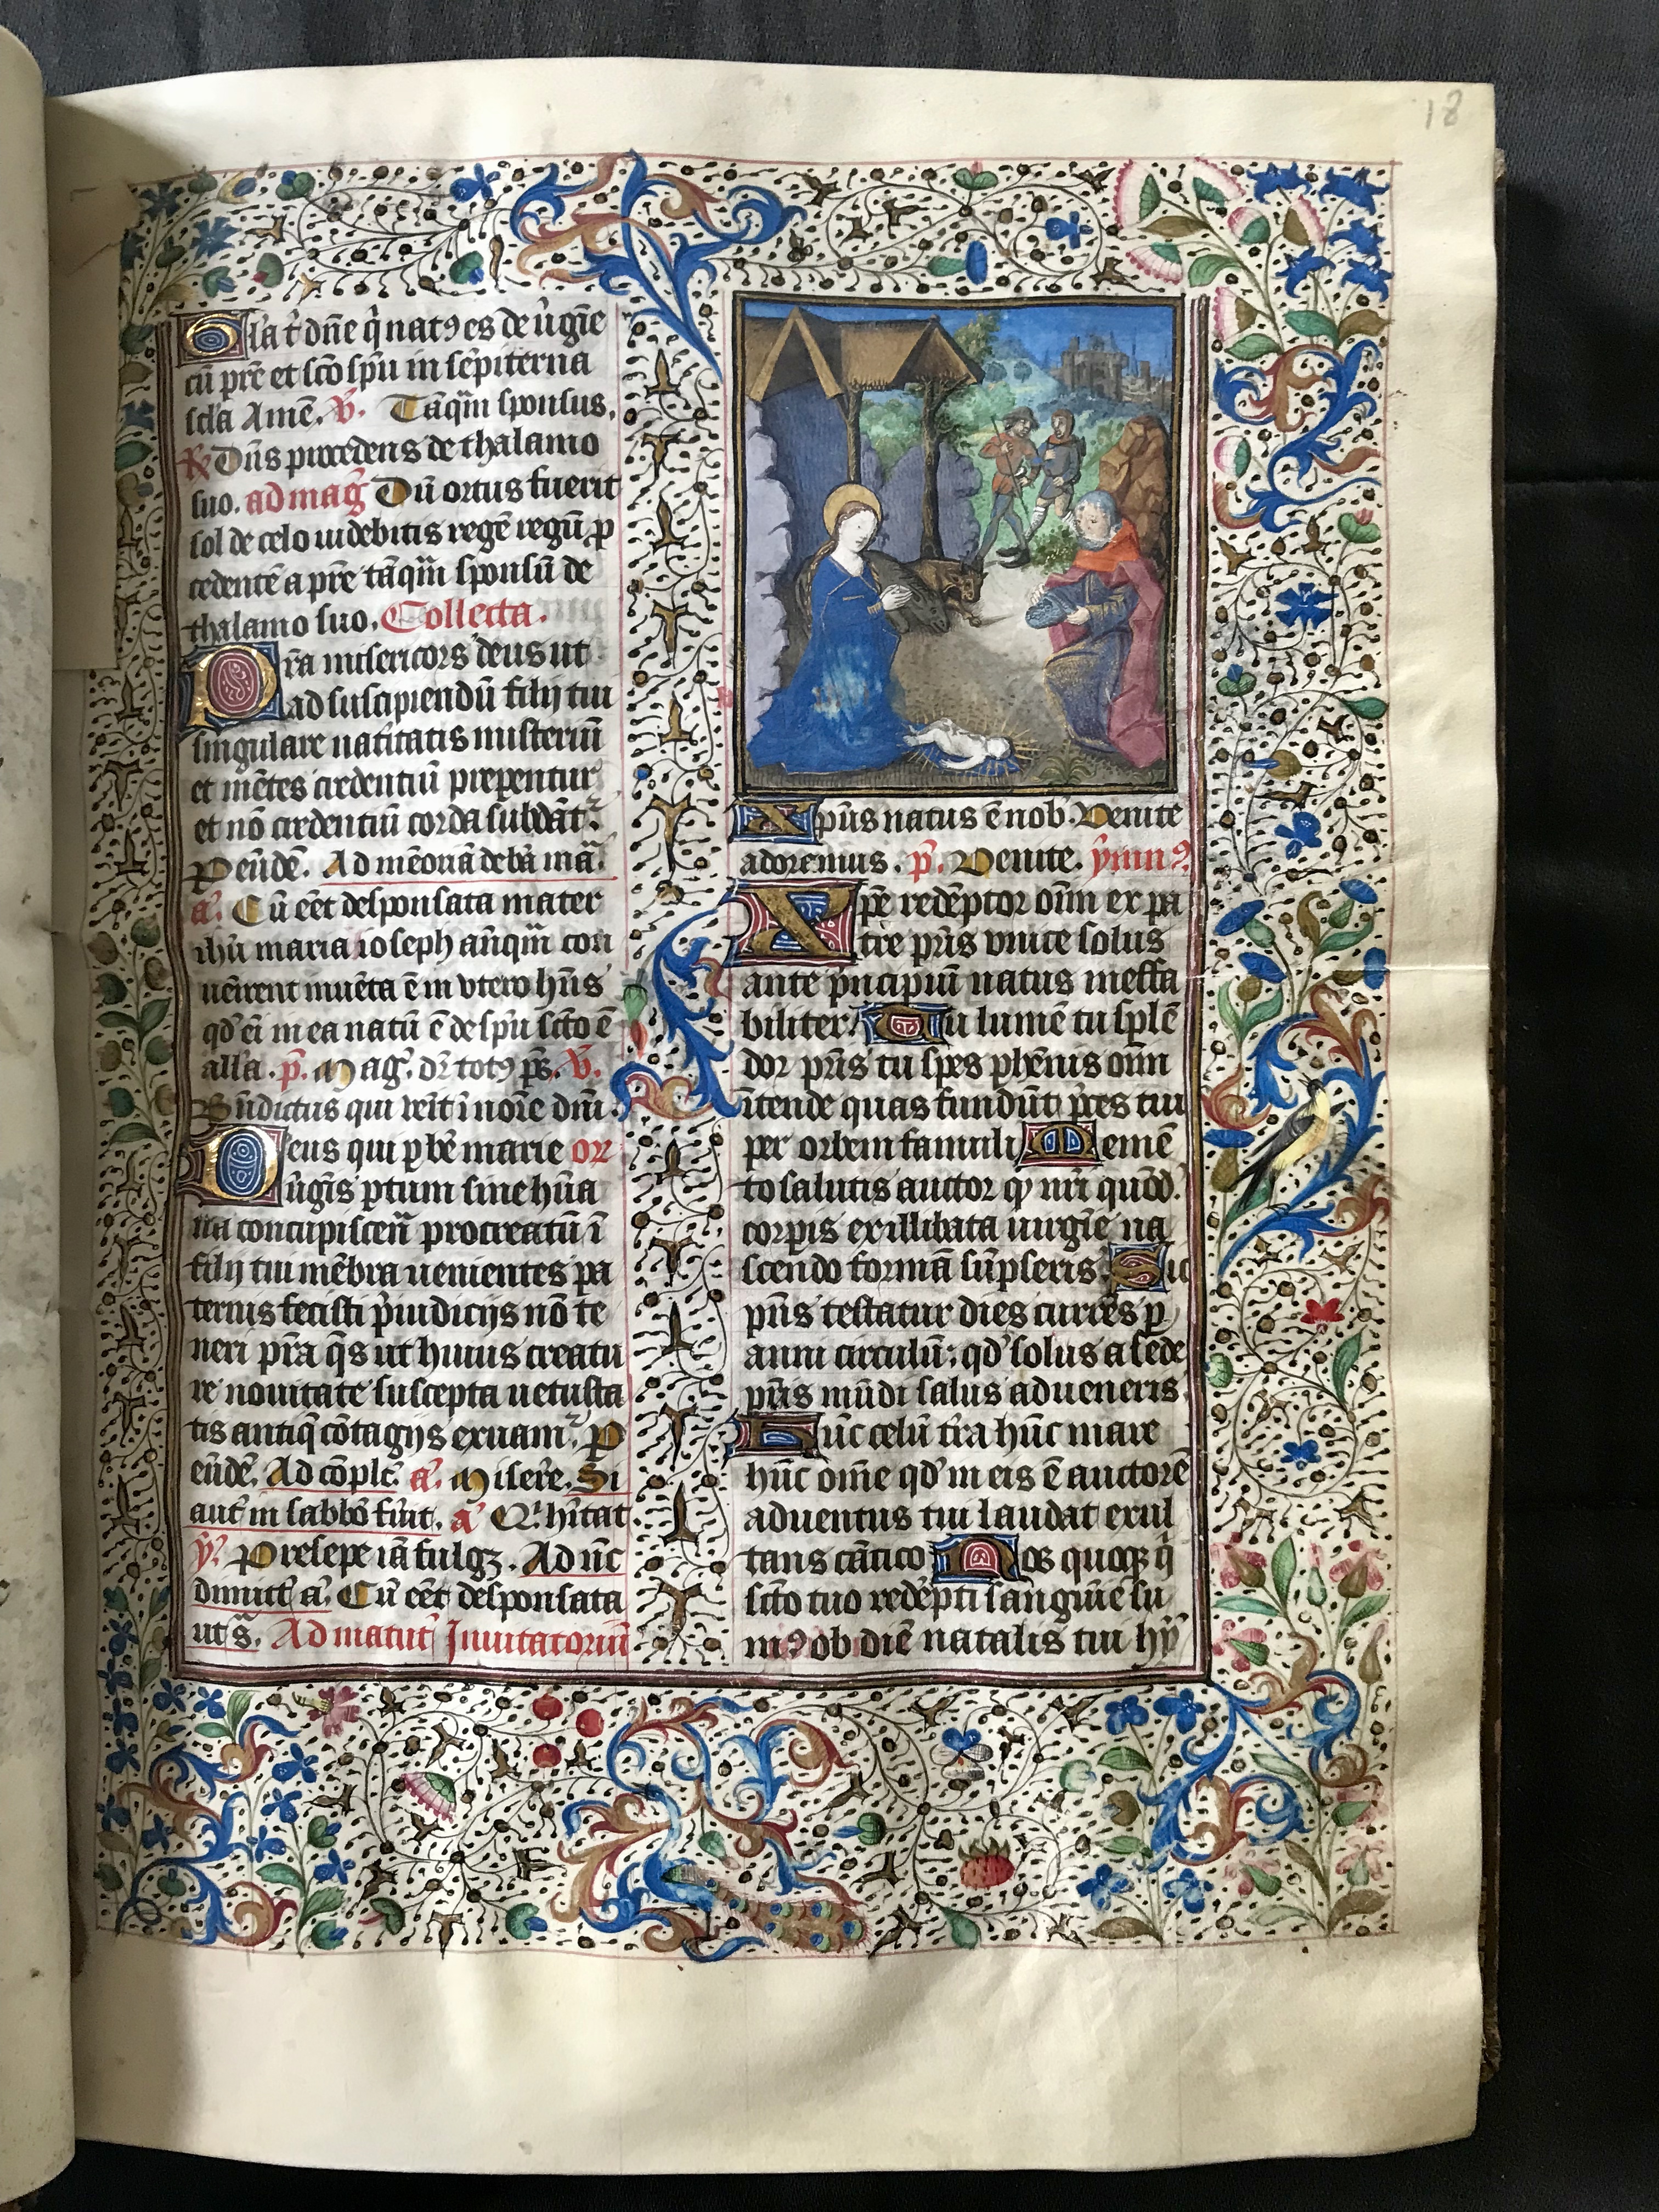 18
Gl'a t' dñe q̇ natꝯ es de ũgĩe
cũ prẽ et sc̃o sp̃u in sẽpiterna
sc̃la Amẽ. v̄. Tãqm̃ sponsus,
℟ Dñs procedens de thalamo
suo. ad mag̃ Dũ ortus fuerit
sol de celo uidebitis regẽ regũ p
cedentẽ a prẽ tãqm̃ sponsũ de
thalamo suo. Collecta.
Pr̃a misericors deus ut
ad suscipiendũ filij tui
singulare nati'tatis misteriũ
et mẽtes credentiũ prepentur
et nõ credentiũ corda subdãt᷑.
P eũdẽ. Ad mẽoriã de bã mã.
a᷑. Cũ eẽt desponsata mater
ihũ maria ioseph añqm̃ con
uẽirent inuẽta ẽ in vtero hñs
qd' ei in ea natũ ẽ de sp̃u sc̃to ẽ
all'a. p̄. Mag᷑. dr̃ totꝯ ps̃. v̄.
Bñdictus qui uẽit ĩ noĩe dñi.
Deus qui p bẽ marie or
ũgĩs ptum sine hũa
na concupiscẽn procreatũ ĩ
filij tui mẽbra uenientes pa
ternis fecisti p̃iudicijs nõ te
neri pr̃a q̃s ut huius creatu
re nouitate suscepta uetusta
tis antiq̃ cõtagijs exuam᷑. P
eũdẽ. Ad cõplt᷑. a᷑. Misere. Si
aut᷑ in sabbõ fũit. a᷑ Q̃ hĩtat
y᷑. Presepe iã fulgꝫ. Ad ñc
dimitt᷑ a᷑. Cũ eẽt desponsata
ut s̃. Ad matut᷑ Inuitatoriũ
Xp̃us natus ẽ nob᷑. Venite
adoremus. p̄. Venite. ymnꝯ
Xp̃e redẽptor oĩm ex pa
tre pr̃is vnice solus
ante p̃ncipiũ natus ineffa
biliter. Tu lumẽ tu splẽ
dor pr̃is tu spes phẽnis oĩm
ĩtende quas fundũt p̃ces tui
per orbem famuli Memẽ
to salutis auctor qp nr̃i quõd᷑
corpis ex illibata uirgĩe na
scendo formã sũpseris Sic
pñs testatur dies currẽs p
anni circulũ: qd' solus a sede
pr̃is mũdi salus adueneris
Hũc celũ tr̃a hũc mare
hũc om̃e qd' in eis ẽ auctorẽ
aduentus tui laudat exul
tans cãtico Nos quoqꝫ q̇
sc̃to tuo redẽpti sanguĩe su
mꝯ ob diẽ natalis tui hỹ